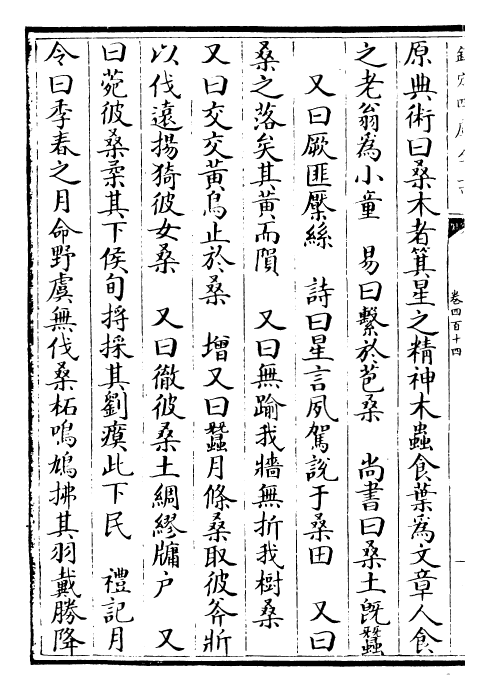 欽定四庫全書
卷四百十四
原典術曰桑木者箕星之精神木蟲食葉為文章人食
之老翁為小童　易曰繫於苞桑　尚書曰桑土既蠶
又曰厥匪檿絲　詩曰星言夙駕說于桑田　又曰
桑之落矣其黃而隕　又曰無踰我牆無折我樹桑
又曰交交黃鳥止於桑　增又曰蠶月條桑取彼斧斨
以伐遠揚猗彼女桑　又曰徹彼桑土綢繆牖户　又
曰菀彼桑柔其下侯旬捋採其劉瘼此下民　禮記月
令曰季春之月命野虞無伐桑柘鳴鳩拂其羽戴勝降